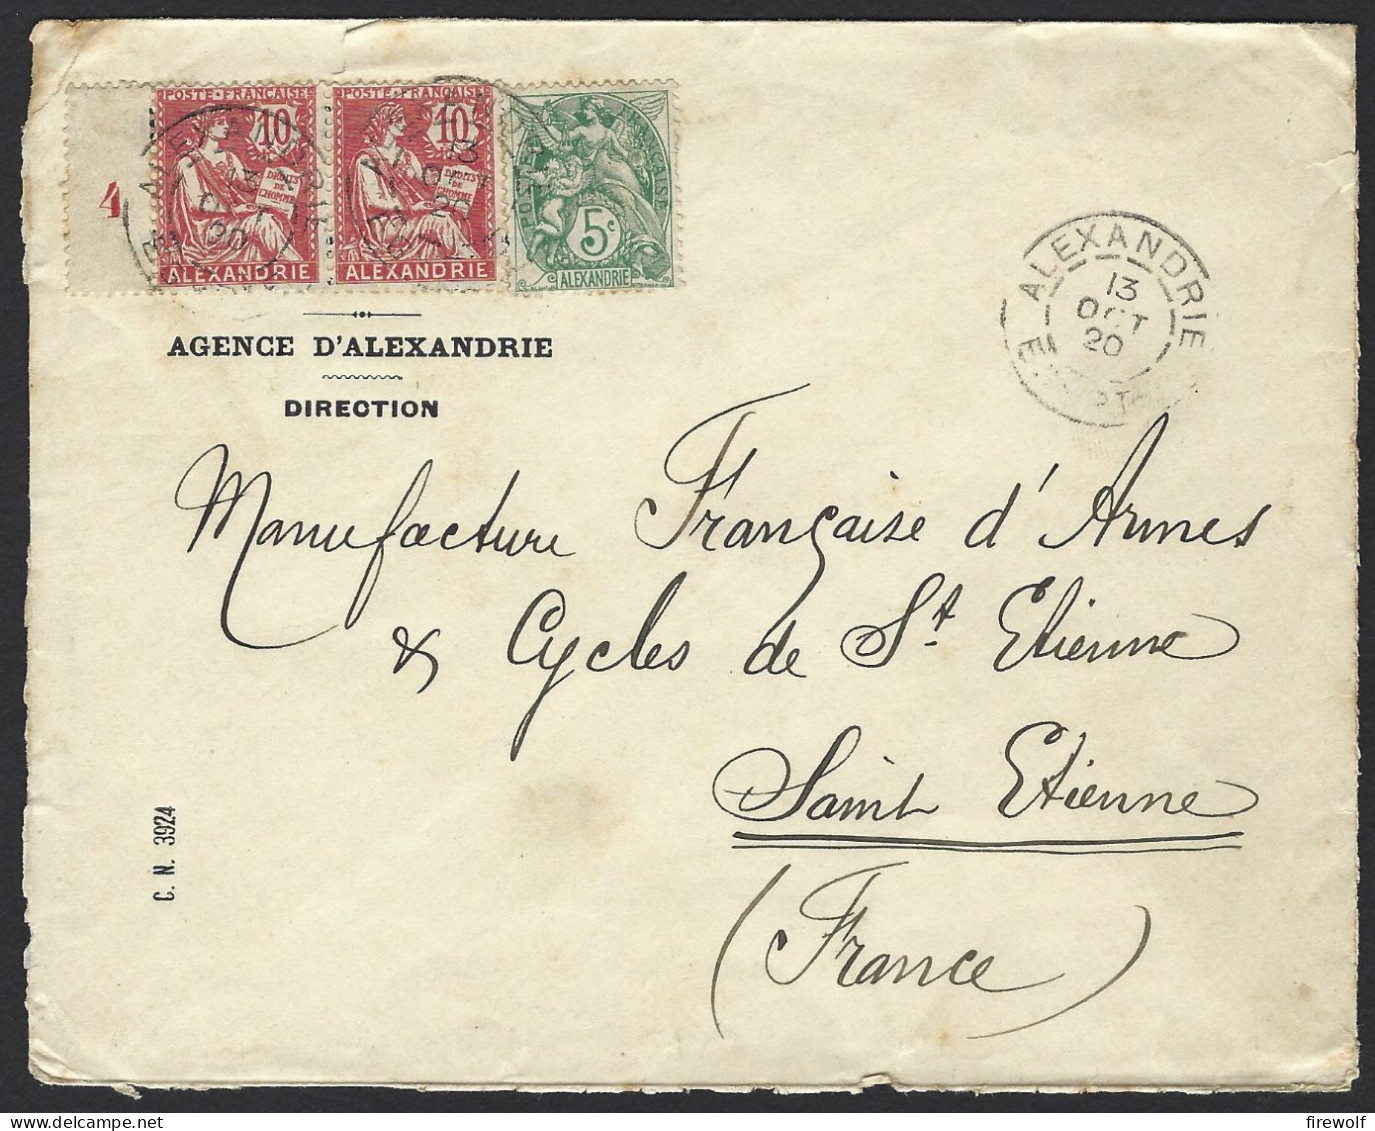 POSTE FRANÇAISE
10
DROITS DE L'HOMME
ALEXANDRIE
POSTE FRANÇAISE
10
DROITS DE L'HOMME
ALEXANDRIE
5c
ALEXANDRIE
4
ALEXANDRIE
13
OCT
20
AGENCE D'ALEXANDRIE
DIRECTION
Manufacture Française d'Armes
& Cycles de St Etienne
Saint Etienne
(France)
C. N. 3924
firewolf